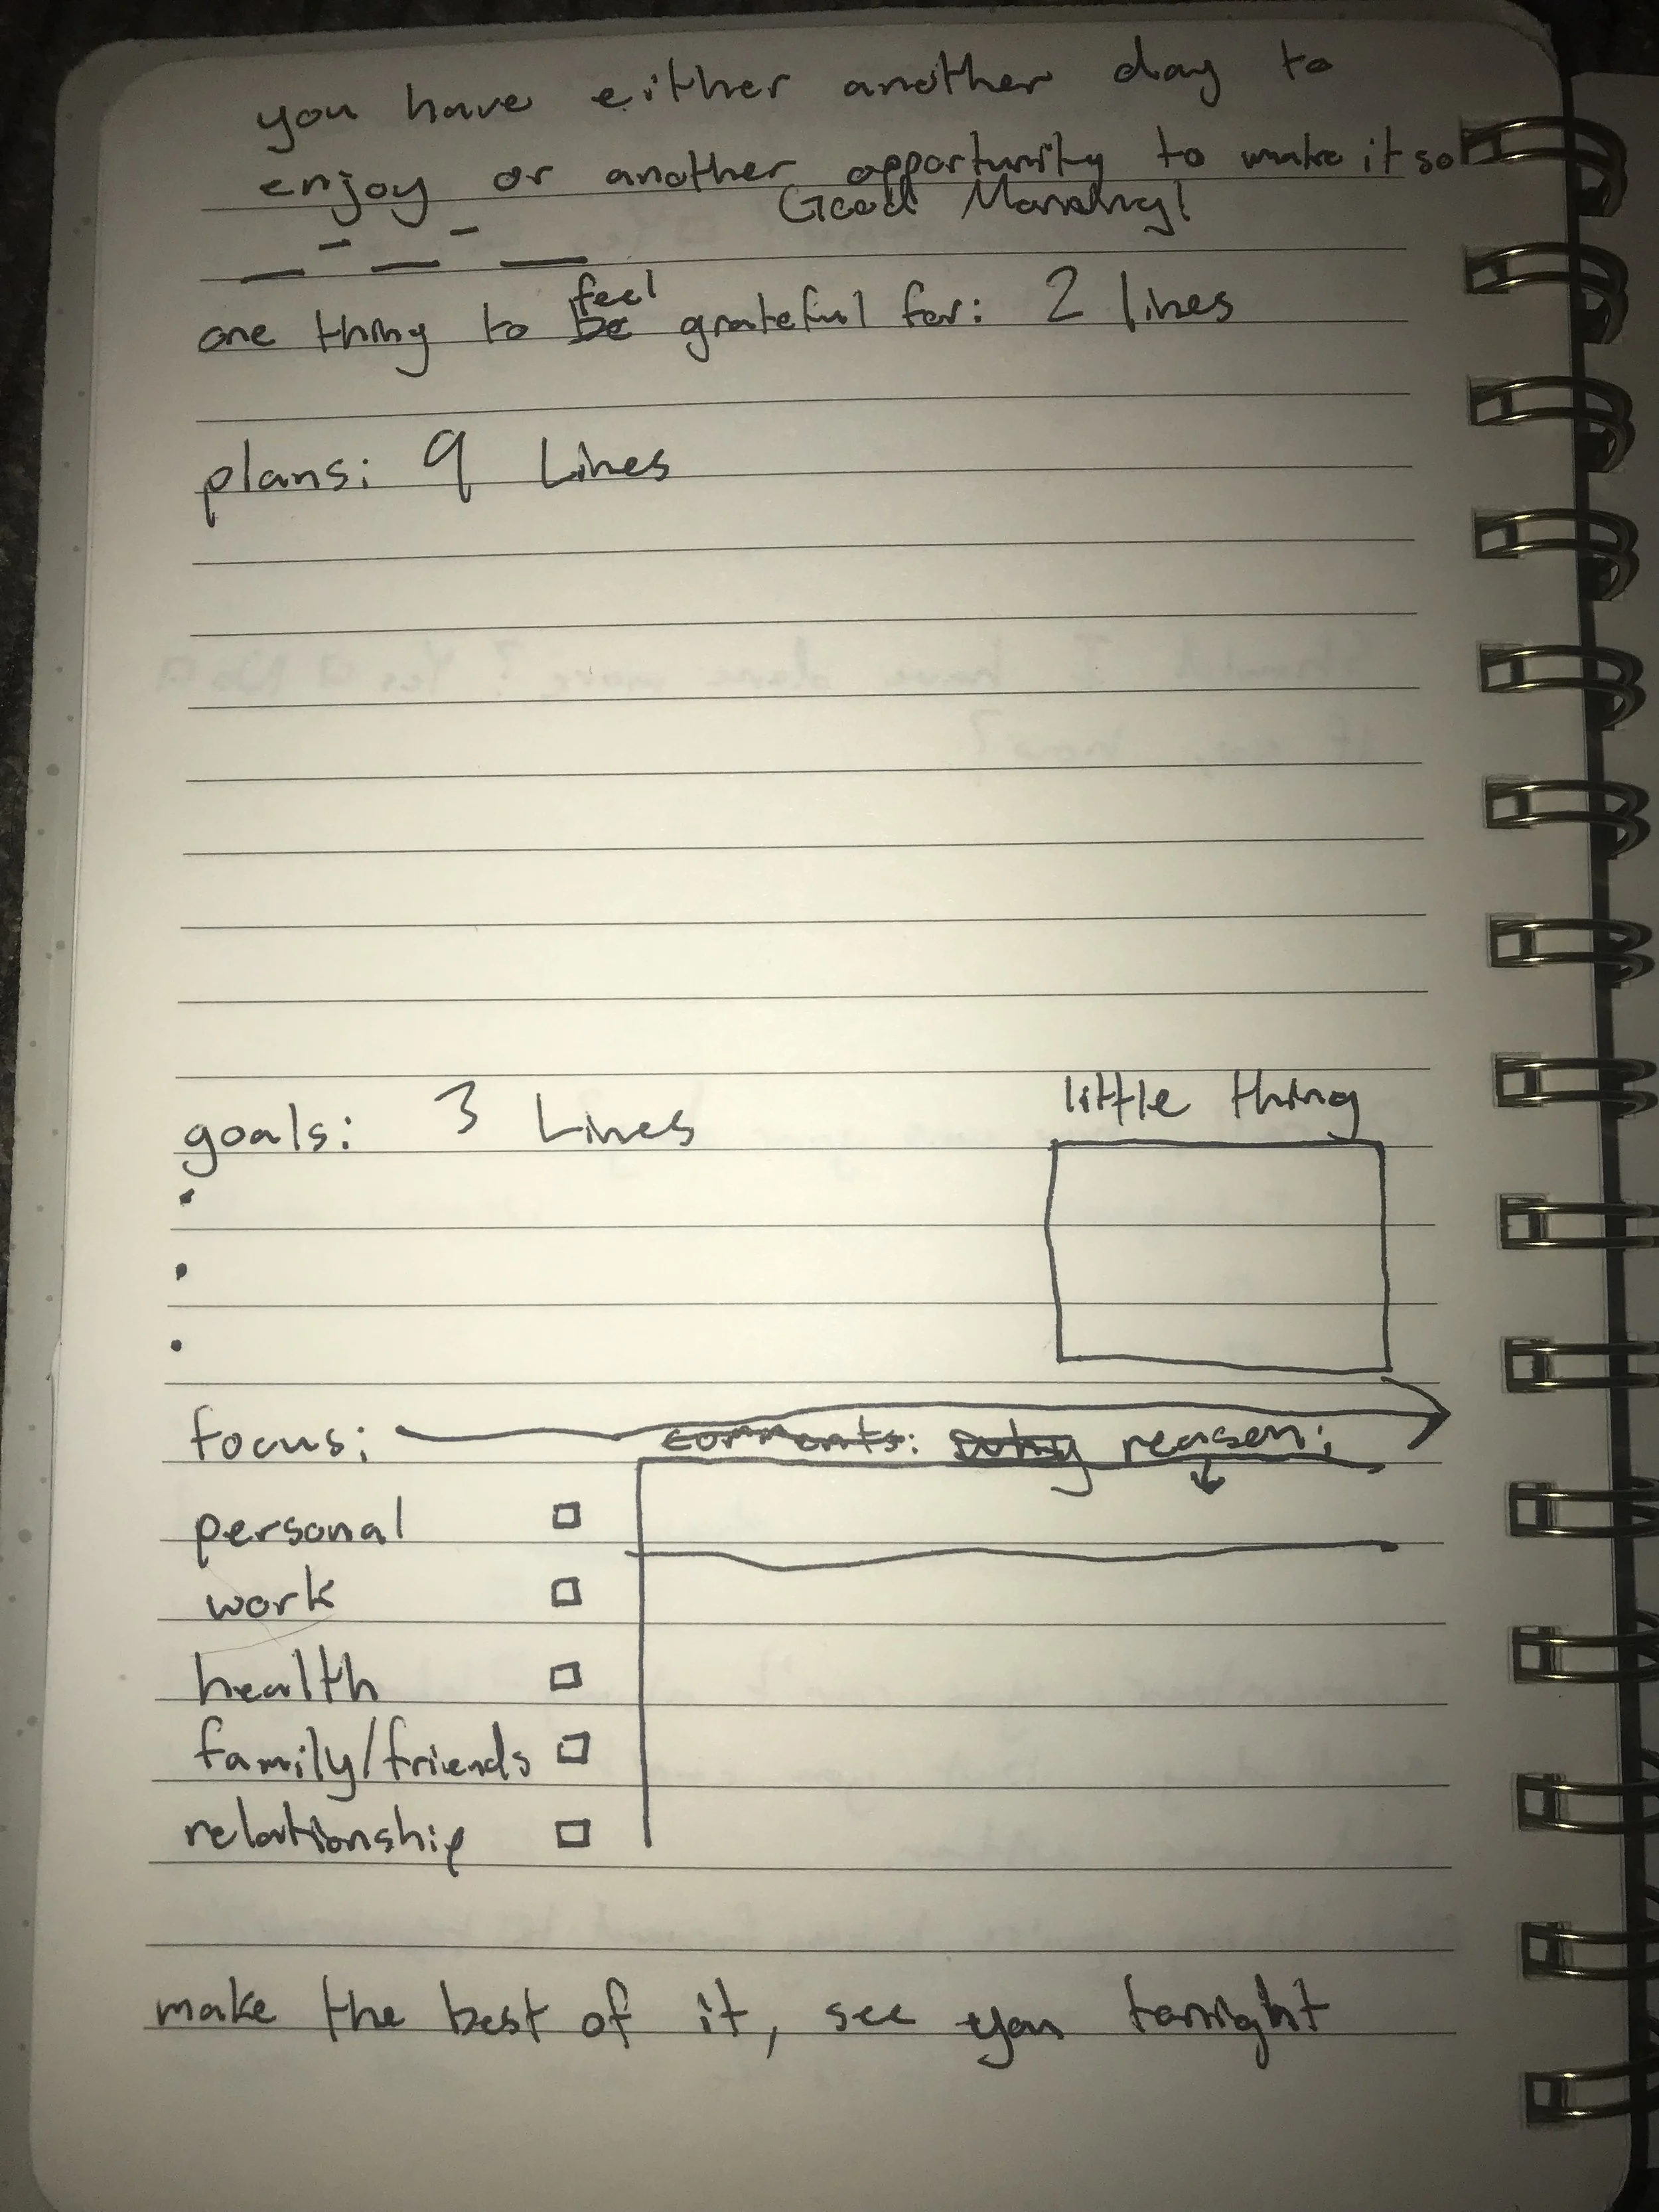 you have either another day to
enjoy or another opportunity to make it so
Good Morning!
__ - __ - __
feel
one thing to be grateful for: 2 lines
plans: 9 Lines
little thing
goals: 3 Lines
•
•
•
focus: comments: why reason:
personal
work
health
family/friends
relationship
make the best of it, see you tonight